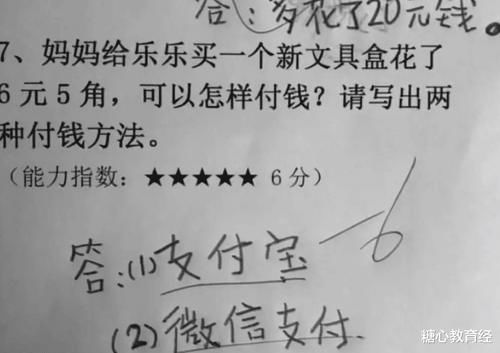 答：多花了20元钱。
7、妈妈给乐乐买一个新文具盒花了
6元5角，可以怎样付钱？请写出两
种付钱方法。
（能力指数：★★★★★ 6分）
-6
答：(1)支付宝
(2)微信支付.
糖心教育经